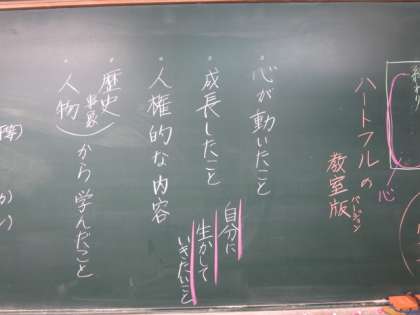 ハートフルの
教室版
バージョン
心
・心が動いたこと
・成長したこと
自分に
生かして
いきたいこと
・人権的な内容
・歴史
事象
・人物
から学んだこと